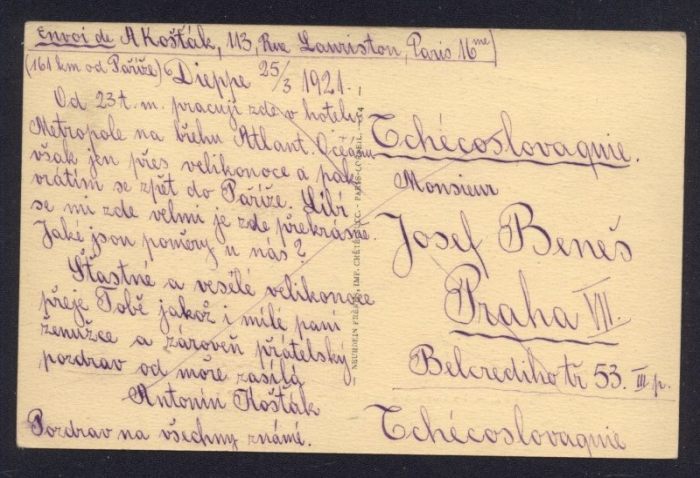 Envoi de A Košťák, 113, Rue Lauriston, Paris 16me)
(161 km od Paříže) Dieppe 25/3 1921.
Od 23 t. m. pracuji zde v hotelu
Metropole na břehu Atlant. Oceánu
však jen přes velikonoce a pak
vrátím se zpět do Paříže. Líbí
se mi zde velmi je zde překrásně.
Jaké jsou poměry u nás?
Šťastné a veselé velikonoce
přeje Tobě jakož i milé paní
ženušce a zároveň přátelský
pozdrav od moře zasílá
Antonín Košťák
Pozdrav na všechny známé.
NEURDEIN FRÈRES, IMP. CRÉTÉ, SUCC. - PARIS-CORBEIL.
Tchécoslovaquie.
Monsieur
Josef Beneš
Praha VII.
Belcrediho tř 53. III p.
Tchécoslovaquie